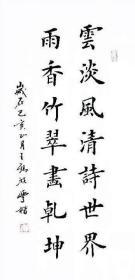 雲淡風清詩世界
雨香竹翠畫乾坤
歲在己亥正月